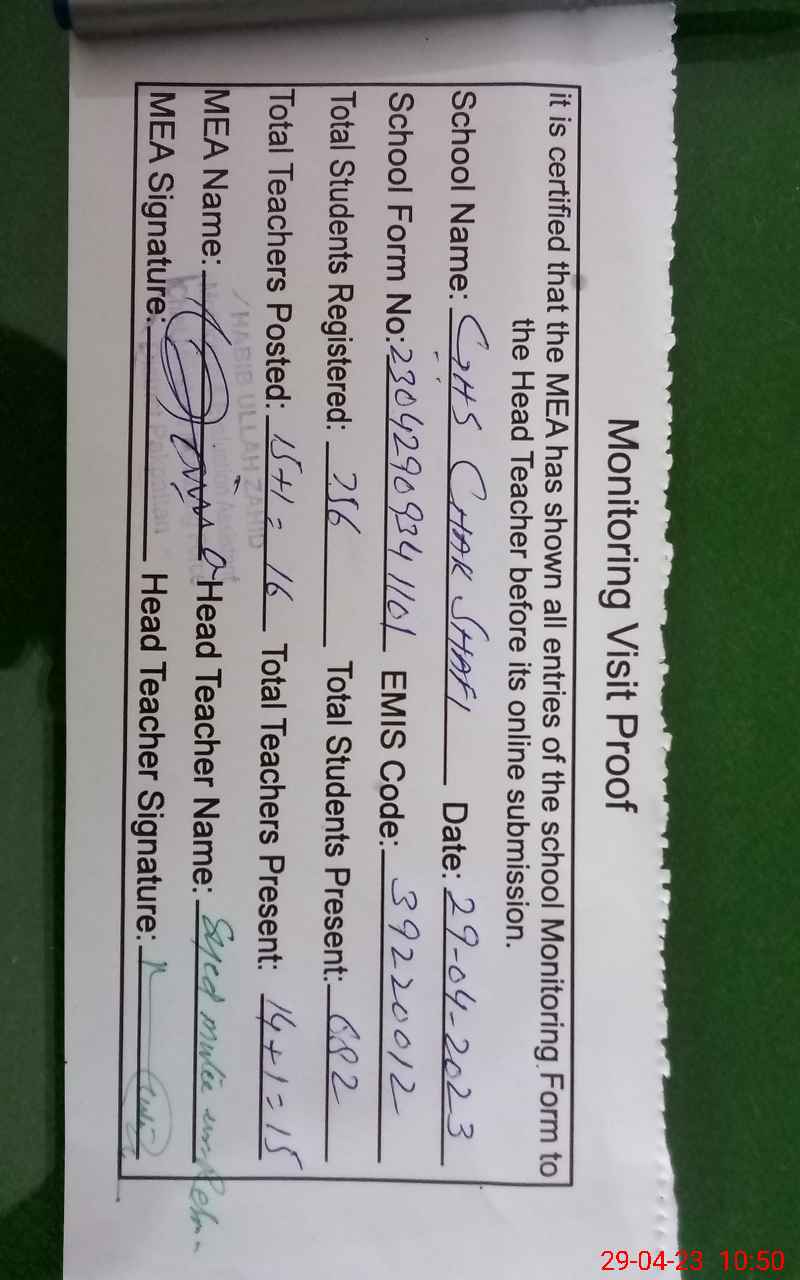 Monitoring Visit Proof
it is certified that the MEA has shown all entries of the school Monitoring Form to
the Head Teacher before its online submission.
School Name: GHS CHAK SHAFI Date: 29-04-2023
School Form No: 23042909341101 EMIS Code: 39220012
Total Students Registered: 786 Total Students Present: 682
Total Teachers Posted: 15+1= 16 Total Teachers Present: 14+1=15
MEA Name: Head Teacher Name: Syed
MEA Signature: Head Teacher Signature:
HABIB ULLAH ZAHID
29-04-23 10:50